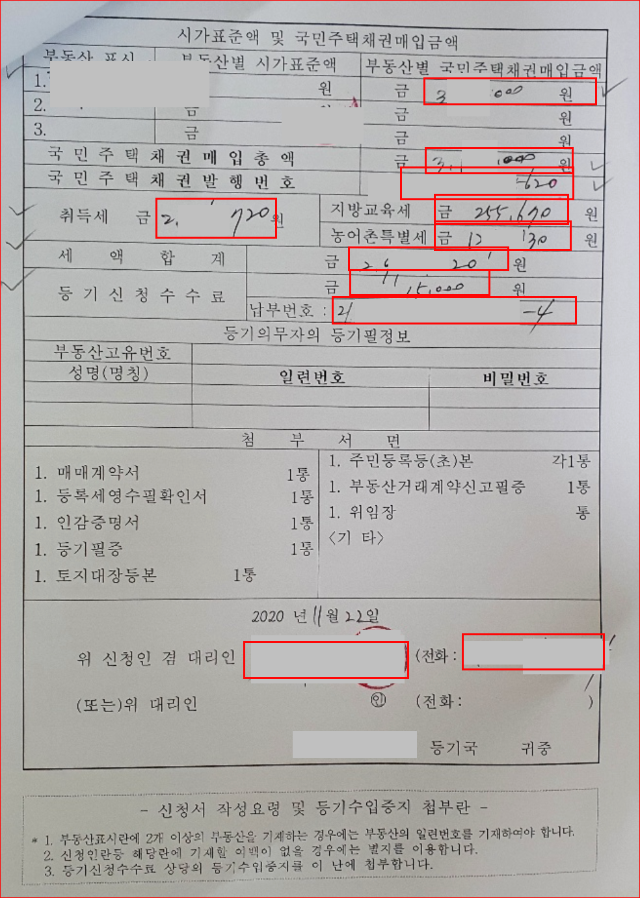 시가표준액 및 국민주택채권매입금액
부동산 표시 부동산별 시가표준액 부동산별 국민주택채권매입금액
1. 원 금 3 000 원
2. 금 금
3. 금 금
국민주택채권매입총액 금 3, 000 원
국민주택채권발행번호 -620
취득세 금 2, 720 원 지방교육세 금 255,670 원
농어촌특별세 금 12 30 원
세 액 합 계 금 2 20 원
등기신청수수료 금 15,000 원
납부번호 : 21 -4
등기의무자의 등기필정보
부동산고유번호
성명(명칭) 일련번호 비밀번호
첨 부 서 면
1. 매매계약서 1통
1. 등록세영수필확인서 1통
1. 인감증명서 1통
1. 등기필증 1통
1. 토지대장등본 1통
1. 주민등록등(초)본 각1통
1. 부동산거래계약신고필증 1통
1. 위임장 통
<기 타>
2020 년 11월 22일
위 신청인 겸 대리인 (전화 :
(또는)위 대리인 ㊞ (전화 : )
등기국 귀중
- 신청서 작성요령 및 등기수입증지 첩부란 -
* 1. 부동산표시란에 2개 이상의 부동산을 기재하는 경우에는 부동산의 일련번호를 기재하여야 합니다.
2. 신청인란등 해당란에 기재할 여백이 없을 경우에는 별지를 이용합니다.
3. 등기신청수수료 상당의 등기수입증지를 이 난에 첩부합니다.